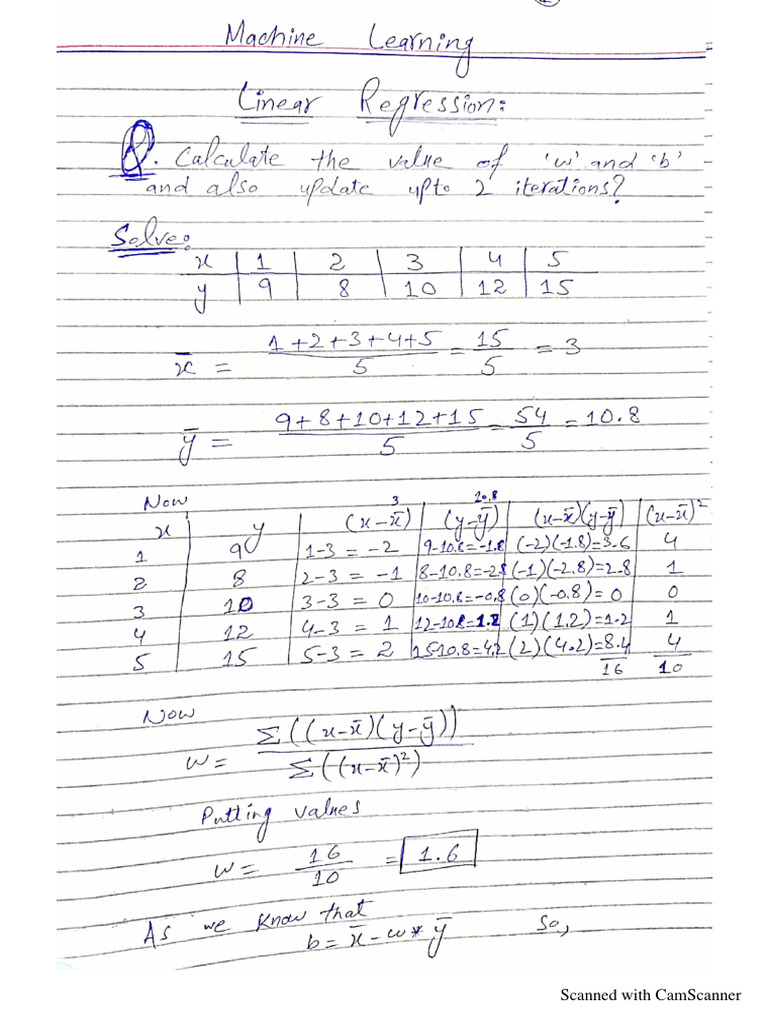 Machine Learning
Linear Regression:
Q. Calculate the value of 'w' and 'b'
and also update upto 2 iterations?
Solve:
x | 1 | 2 | 3 | 4 | 5
y | 9 | 8 | 10 | 12 | 15
x̄ = 1+2+3+4+5/5 = 15/5 = 3
ȳ = 9+8+10+12+15/5 = 54/5 = 10.8
Now 3 10.8
x | y | (x-x̄) | (y-ȳ) | (x-x̄)(y-ȳ) | (x-x̄)²
1 | 9 | 1-3 = -2 | 9-10.8=-1.8 | (-2)(-1.8)=3.6 | 4
2 | 8 | 2-3 = -1 | 8-10.8=-2.8 | (-1)(-2.8)=2.8 | 1
3 | 10 | 3-3 = 0 | 10-10.8=-0.8 | (0)(-0.8)=0 | 0
4 | 12 | 4-3 = 1 | 12-10.8=1.2 | (1)(1.2)=1.2 | 1
5 | 15 | 5-3 = 2 | 15-10.8=4.2 | (2)(4.2)=8.4 | 4
16 10
Now
w = Σ((x-x̄)(y-ȳ))/Σ((x-x̄)²)
Putting values
w = 16/10 = 1.6
As we know that
b = x̄ - w * ȳ So,
Scanned with CamScanner